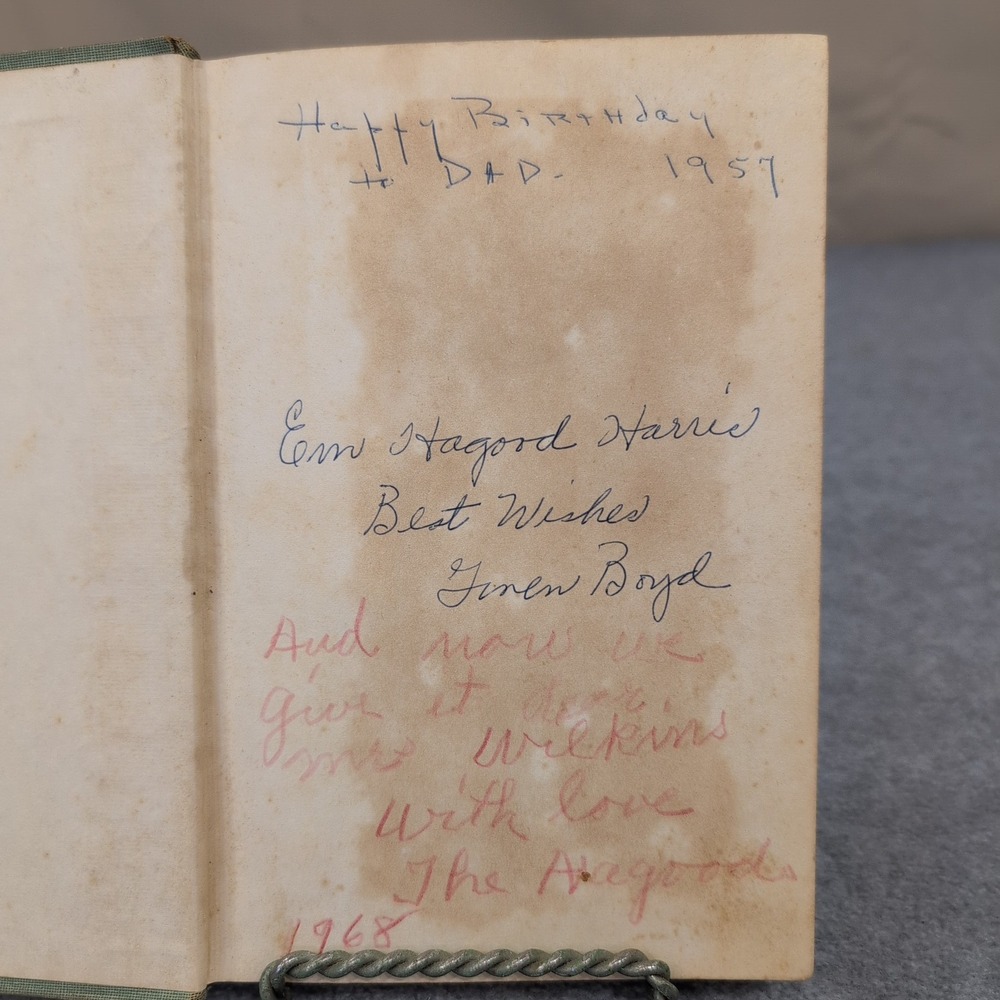 Happy BiRTHday
to DAD. 1957
Em Hagood Harris
Best Wishes
Boyd
And now we
give it
mrs Wilkins
With love
The Hagoods
1968